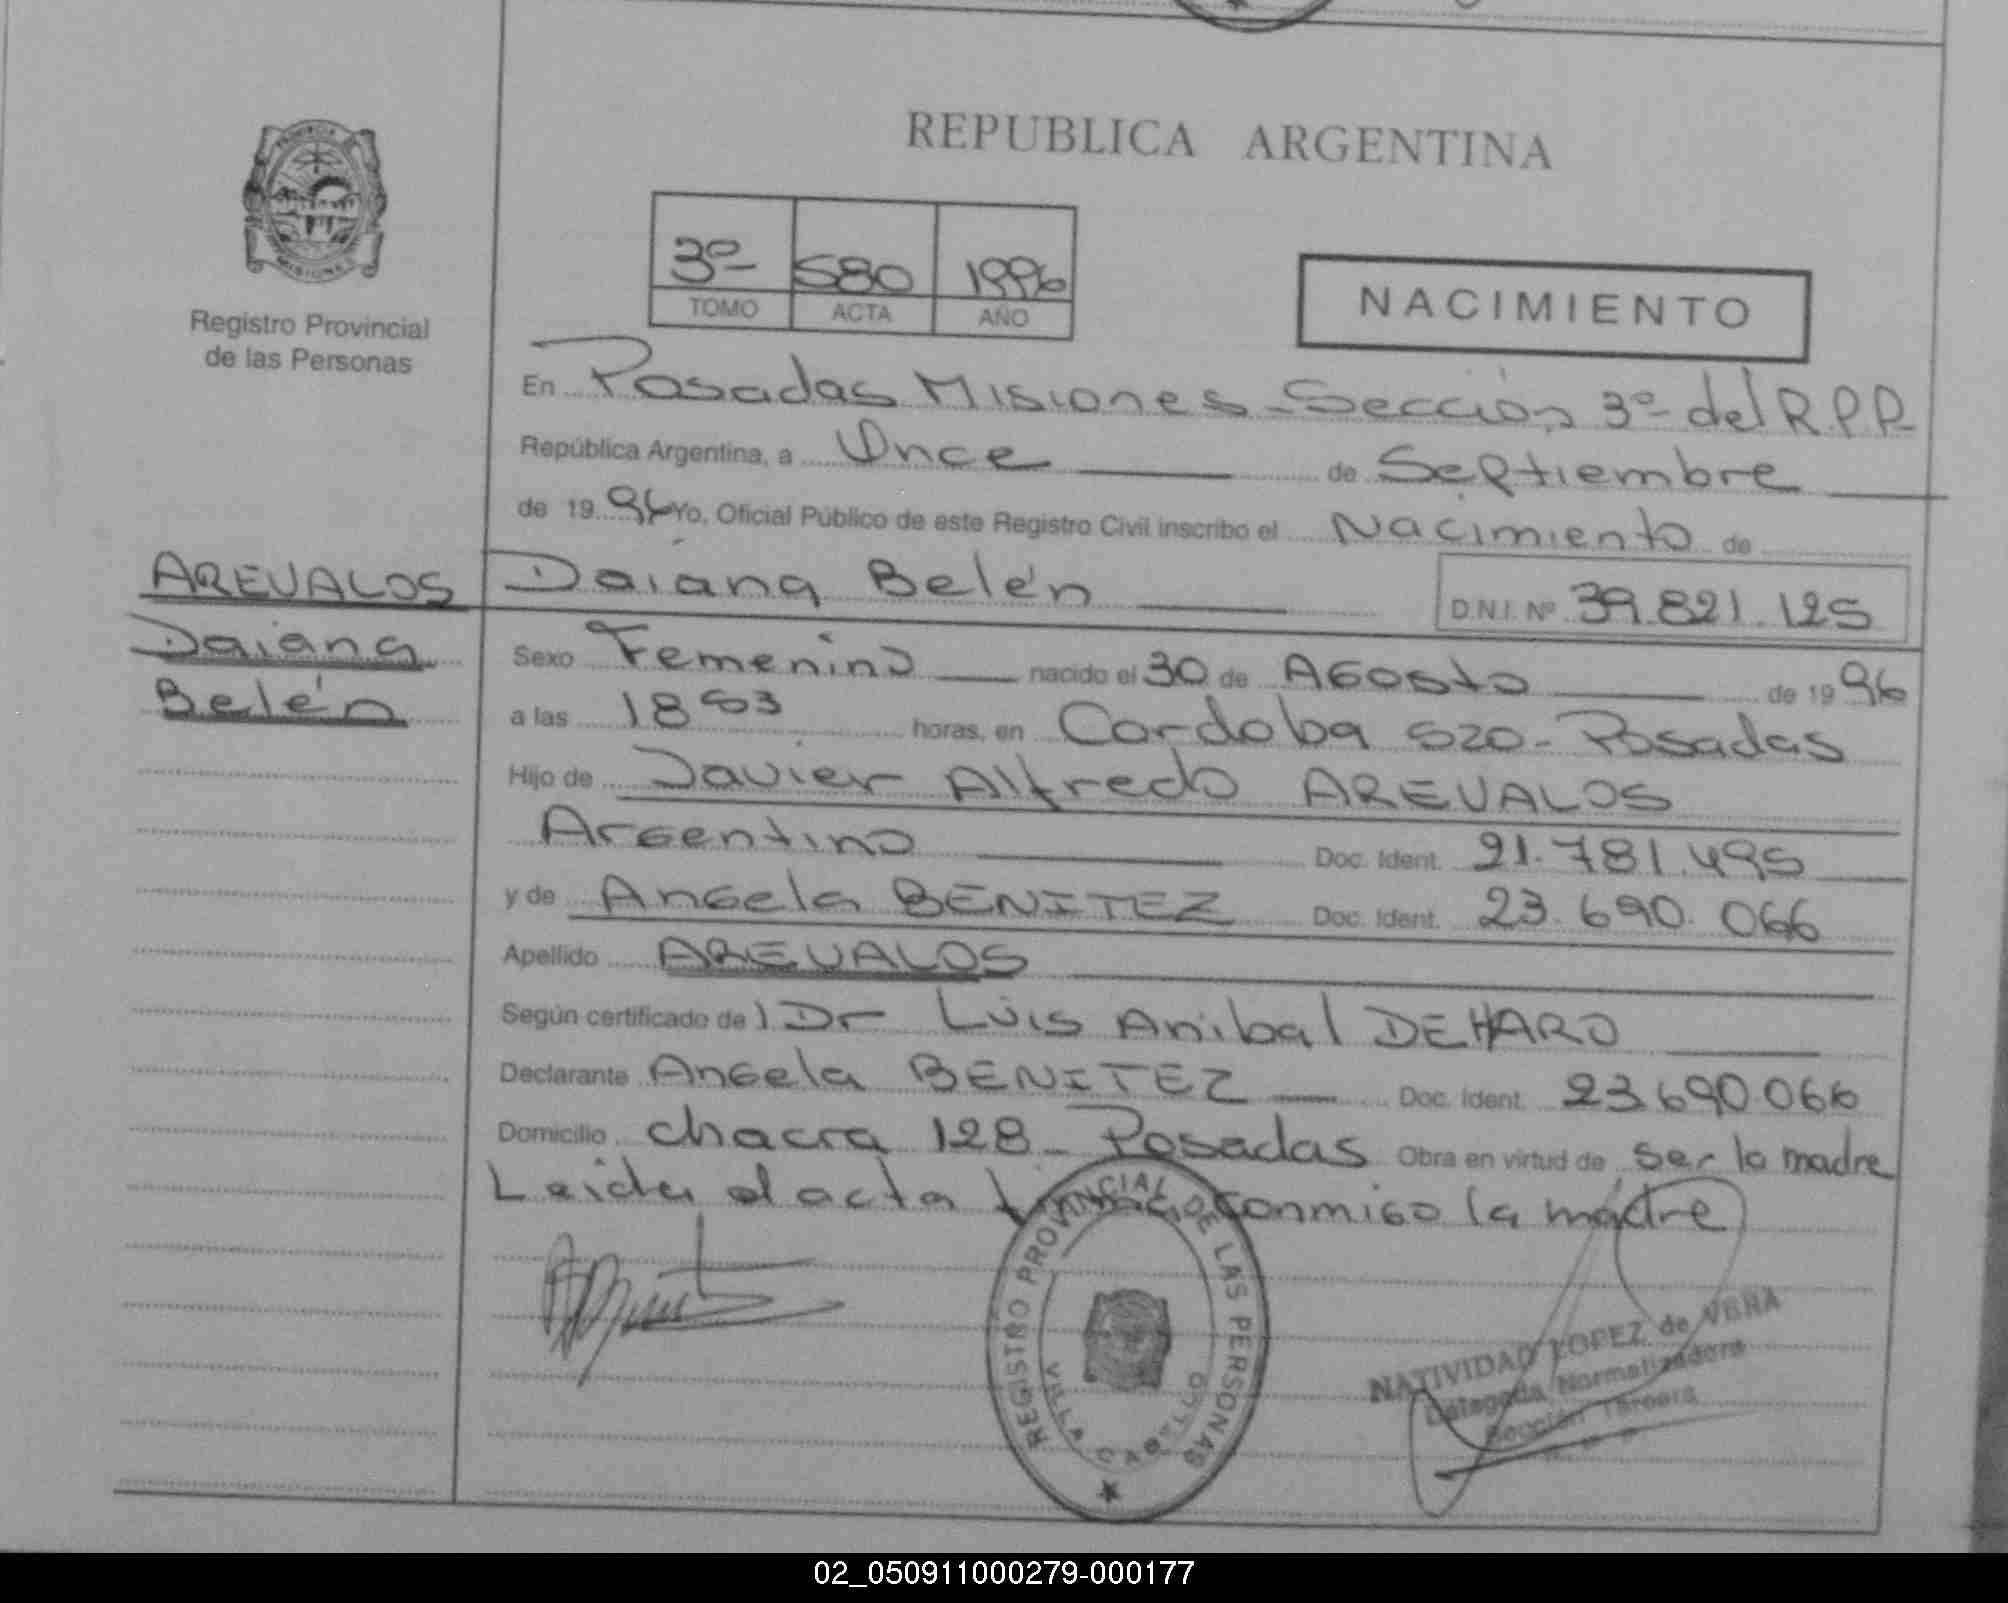 REPUBLICA ARGENTINA
3º 580 1996
TOMO ACTA AÑO
NACIMIENTO
Registro Provincial
de las Personas
En Posadas Misiones - Sección 3º del R.P.P.
República Argentina, a Once de Septiembre
de 1996 Yo, Oficial Público de este Registro Civil inscribo el Nacimiento de
AREVALOS Daiana Belén D.N.I. Nº 39.821.125
Daiana
Belén
Sexo Femenino nacido el 30 de Agosto de 1996
a las 18 horas, en Cordoba 520 - Posadas
Hijo de Javier Alfredo AREVALOS
Argentino Doc. Ident. 21.781.495
y de Angela BENITEZ Doc. Ident. 23.690.066
Apellido AREVALOS
Según certificado del Dr Luis Anibal DEHARO
Declarante Angela BENITEZ Doc. Ident. 23690066
Domicilio chacra 128 - Posadas Obra en virtud de ser la madre
Leida el acta conmigo la madre
REGISTRO PROVINCIAL DE LAS PERSONAS
VILLA CABELLO
NATIVIDAD LOPEZ de VERA
Delegada Normalizadora
Sección Tercera
02_050911000279-000177